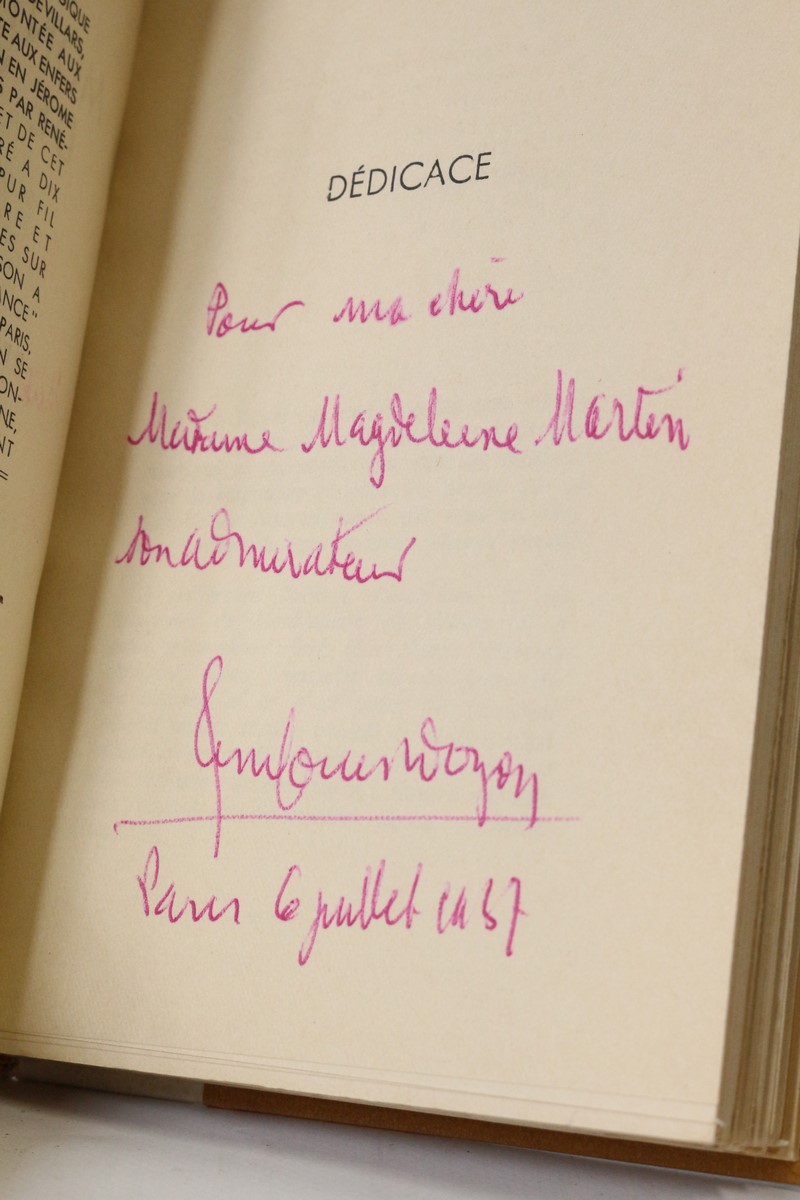 SIQUE
DEVILLARS,
MONTÉE AUX
TE AUX ENFERS
N EN JÉROME
S PAR RENÉ-
ET DE CET
RÉ A DIX
PUR FIL
RE ET
ES SUR
SON A
ANCE"
PARIS,
N SE
ON-
NE,
NT
DÉDICACE
Pour ma chère
Madame Magdeleine Martin
son admirateur
Paris 6 juillet 1937